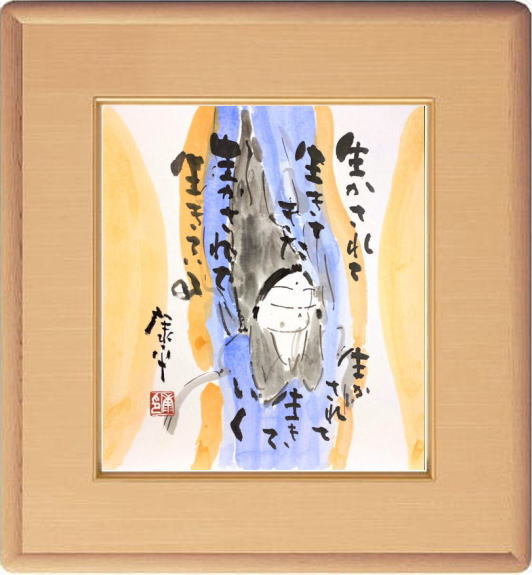 生かされて
生きてきた
生かされて
生きている
生かされて
生きて、
いく